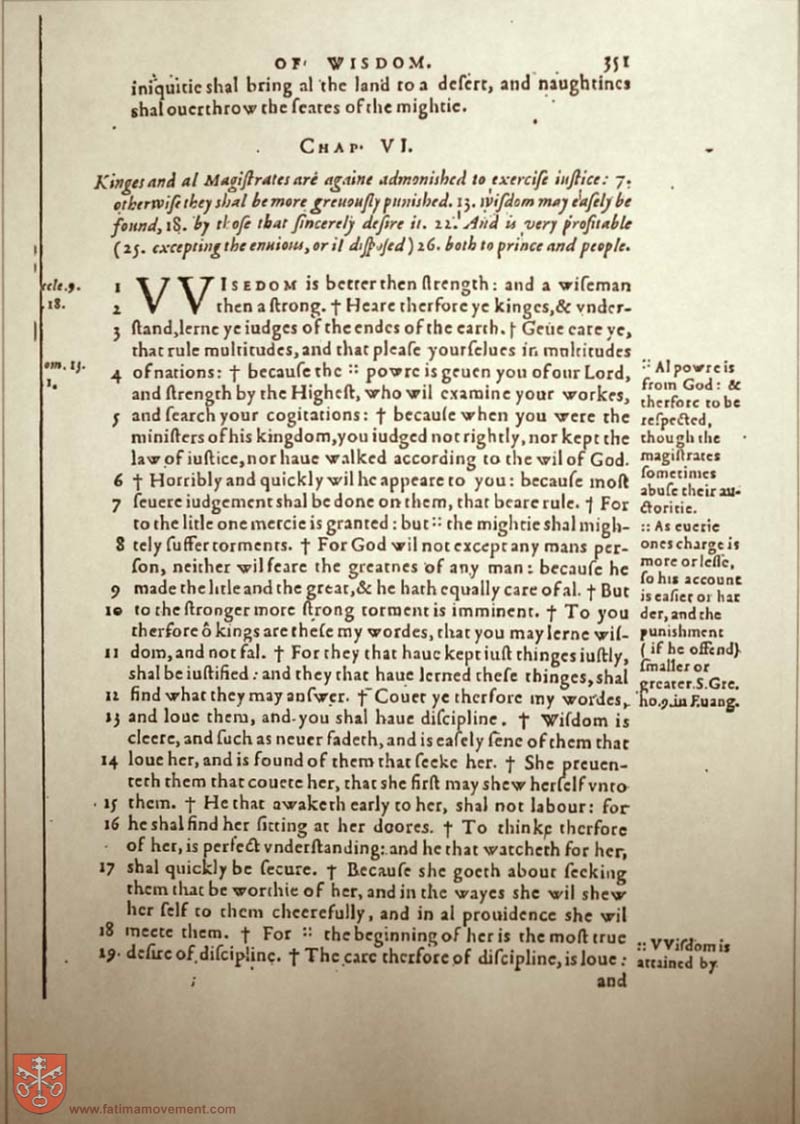 OF WISDOM. 351
iniquitie shal bring al the land to a desert, and naughtines
shal ouerthrow the seates of the mightie.
CHAP. VI.
Kinges and al Magistrates are againe admonished to exercise iustice: 7.
otherwise they shal be more greuously punished. 13. wisdom may easely be
found, 18. by those that sincerely desire it. 22. And is very profitable
(25. excepting the enuious, or il disposed) 26. both to prince and people.
ccle. 9.
18.
1 VVISEDOM is better then strength: and a wiseman
2 then a strong. † Heare therfore ye kinges, & vnder-
3 stand, lerne ye iudges of the endes of the earth. † Geue eare ye,
that rule multitudes, and that please yourselues in multitudes
om. 13.
1.
4 of nations: † because the :: powre is geuen you of our Lord,
and strength by the Highest, who wil examine your workes,
5 and search your cogitations: † because when you were the
ministers of his kingdom, you iudged not rightly, nor kept the
law of iustice, nor haue walked according to the wil of God.
6 † Horribly and quickly wil he appeare to you: because most
7 seuere iudgement shal be done on them, that beare rule. † For
to the litle one mercie is granted: but :: the mightie shal migh-
8 tely suffer torments. † For God wil not except any mans per-
son, neither wil feare the greatnes of any man: because he
9 made the litle and the great, & he hath equally care of al. † But
10 to the stronger more strong torment is imminent. † To you
therfore ô kings are these my wordes, that you may lerne wis-
11 dom, and not fal. † For they that haue kept iust thinges iustly,
shal be iustified: and they that haue lerned these thinges, shal
12 find what they may answer. † Couet ye therfore my wordes,
13 and loue them, and you shal haue discipline. † Wisdom is
cleere, and such as neuer fadeth, and is easely sene of them that
14 loue her, and is found of them that seeke her. † She preuen-
teth them that couete her, that she first may shew herself vnto
15 them. † He that awaketh early to her, shal not labour: for
16 he shal find her sitting at her doores. † To thinke therfore
of her, is perfect vnderstanding: and he that watcheth for her,
17 shal quickly be secure. † Because she goeth about seeking
them that be worthie of her, and in the wayes she wil shew
her self to them cheerefully, and in al prouidence she wil
18 meete them. † For :: the beginning of her is the most true
19 desire of discipline. † The care therfore of discipline, is loue:
and
:: Al powre is
from God: &
therfore to be
respected,
though the
magistrates
sometimes
abuse their au-
ctoritie.
:: As euerie
ones charge is
more or lesse,
so his account
is easier or har
der, and the
punishment
(if he offend)
smaller or
greater. S. Gre.
ho. 9. in Euang.
:: VVisdom is
attained by
www.fatimamovement.com